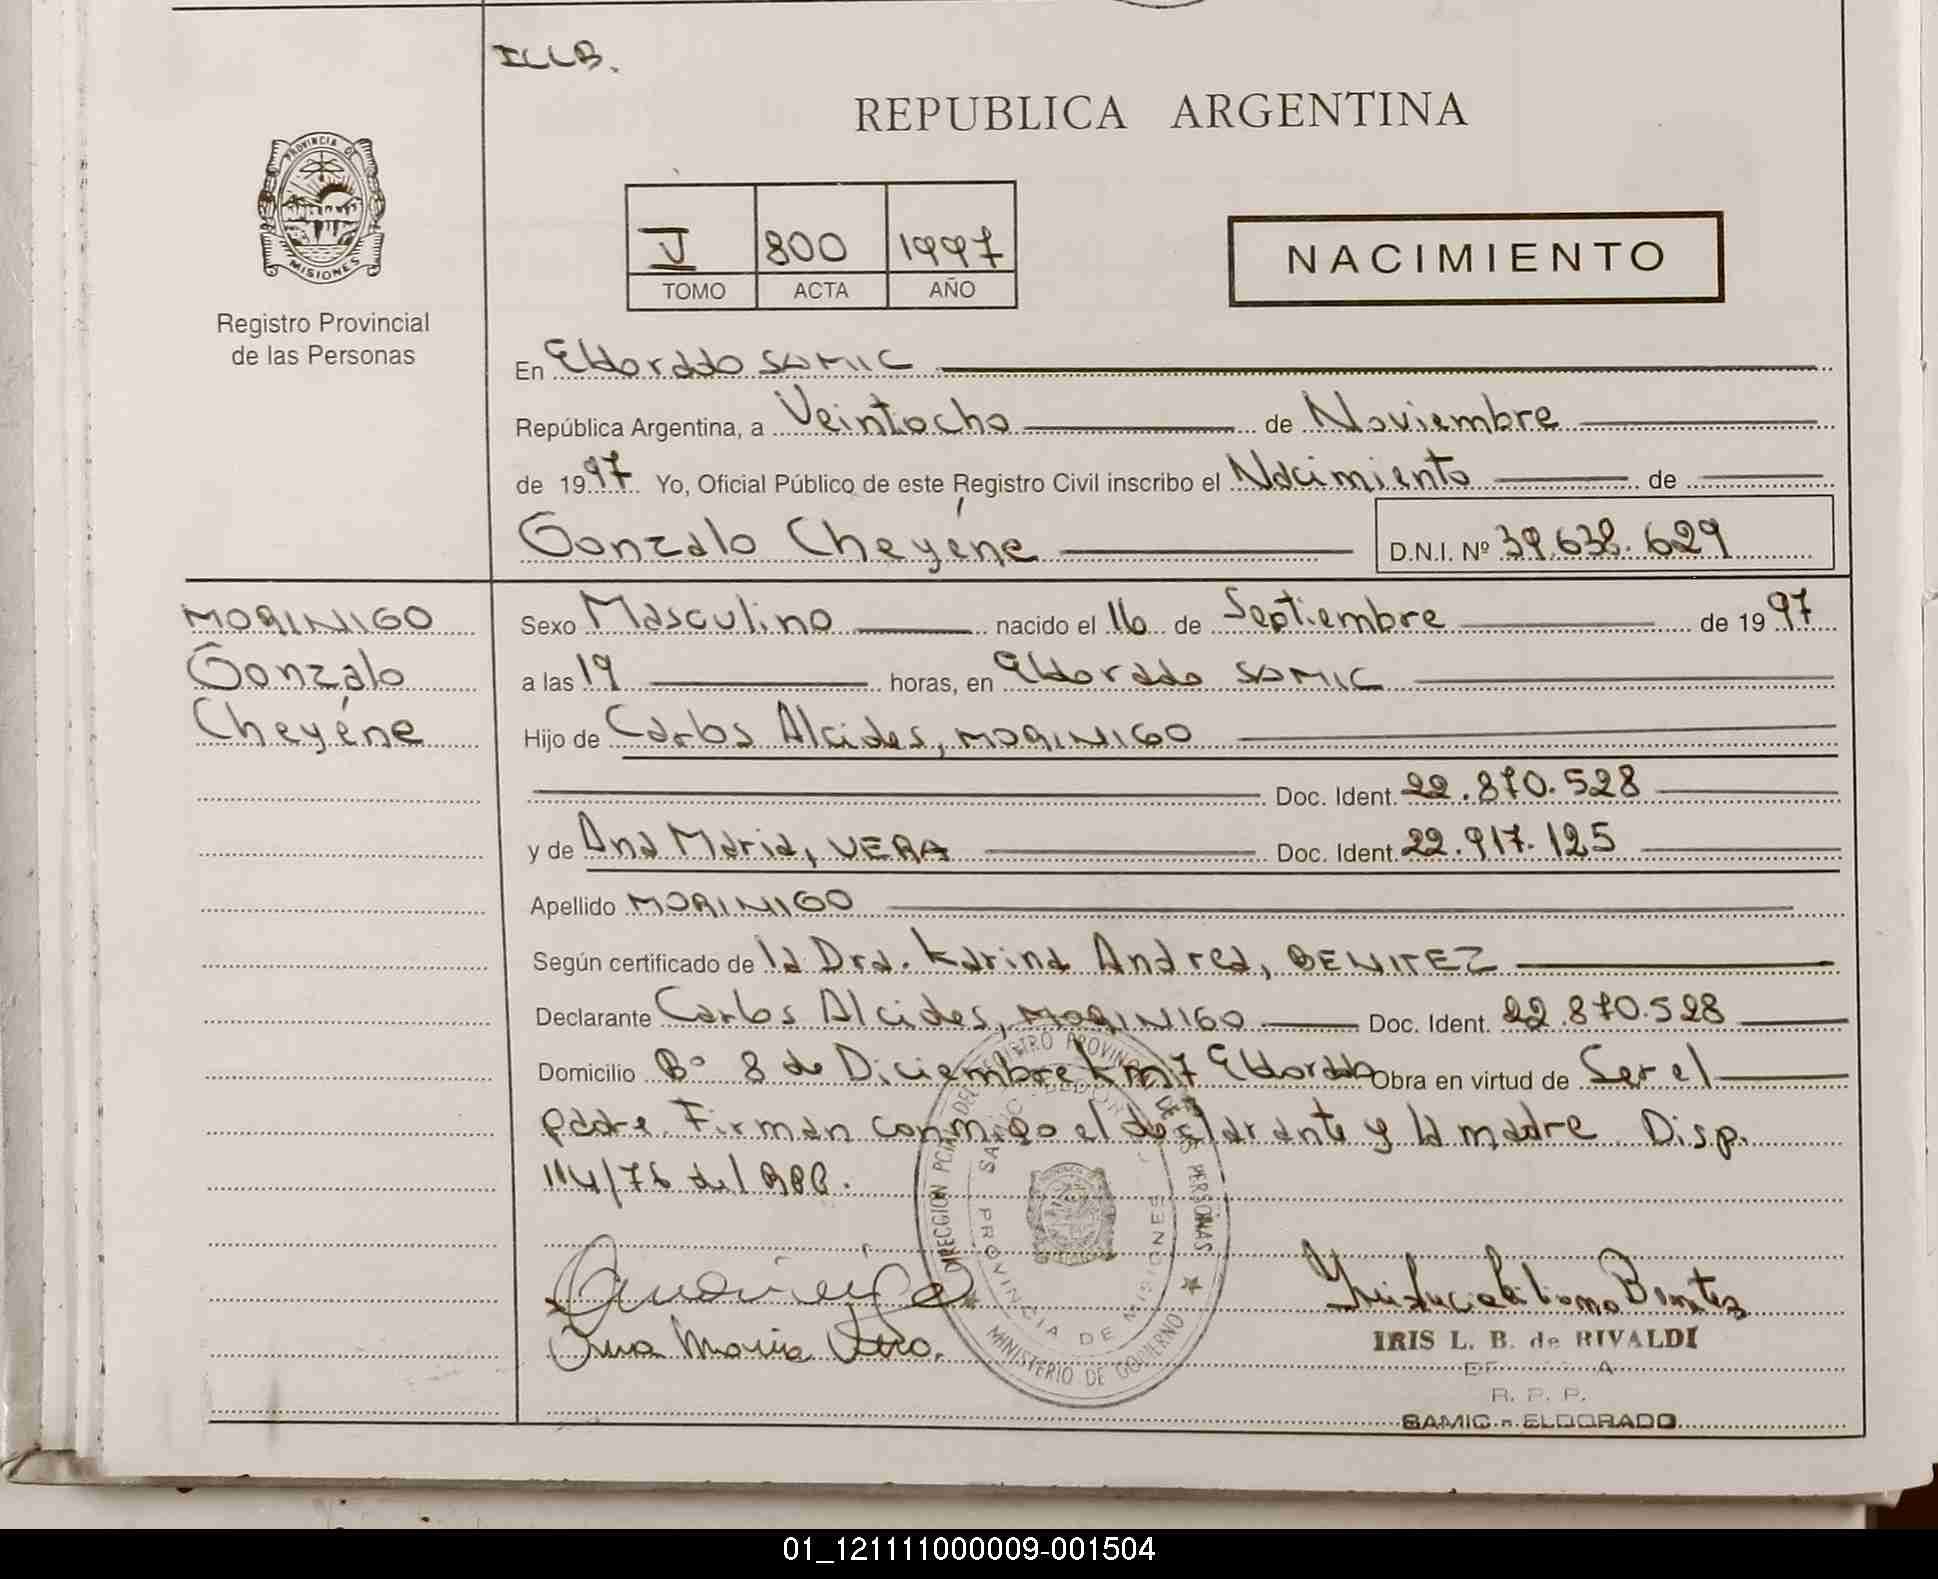 ILLB.
REPUBLICA ARGENTINA
PROVINCIA DE MISIONES
Registro Provincial
de las Personas
J 800 1997
TOMO ACTA AÑO
NACIMIENTO
En Eldorado SAMIC
República Argentina, a Veintocho de Noviembre
de 1997 Yo, Oficial Público de este Registro Civil inscribo el Nacimiento de
Gonzalo Cheyéne D.N.I. Nº 39.638.629
MORINIGO
Gonzalo
Cheyéne
Sexo Masculino nacido el 16 de Septiembre de 1997
a las 19 horas, en Eldorado SAMIC
Hijo de Carlos Alcides, MORINIGO
Doc. Ident. 22.870.528
y de Ana Maria, VERA Doc. Ident. 22.917.125
Apellido MORINIGO
Según certificado de la Dra. Karina Andrea, BENITEZ
Declarante Carlos Alcides, MORINIGO Doc. Ident. 22.870.528
Domicilio Bº 8 de Diciembre km 7 Eldorado Obra en virtud de Ser el
padre. Firman conmigo el declarante y la madre. Disp.
114/76 del RPP.
DIRECCION PCIAL DEL REGISTRO PROVINCIAL DE LAS PERSONAS
PROVINCIA DE MISIONES
MINISTERIO DE GOBIERNO
Ana Maria Vera.
IRIS L. B. de RIVALDI
R. P. P.
SAMIC - ELDORADO
01_121111000009-001504